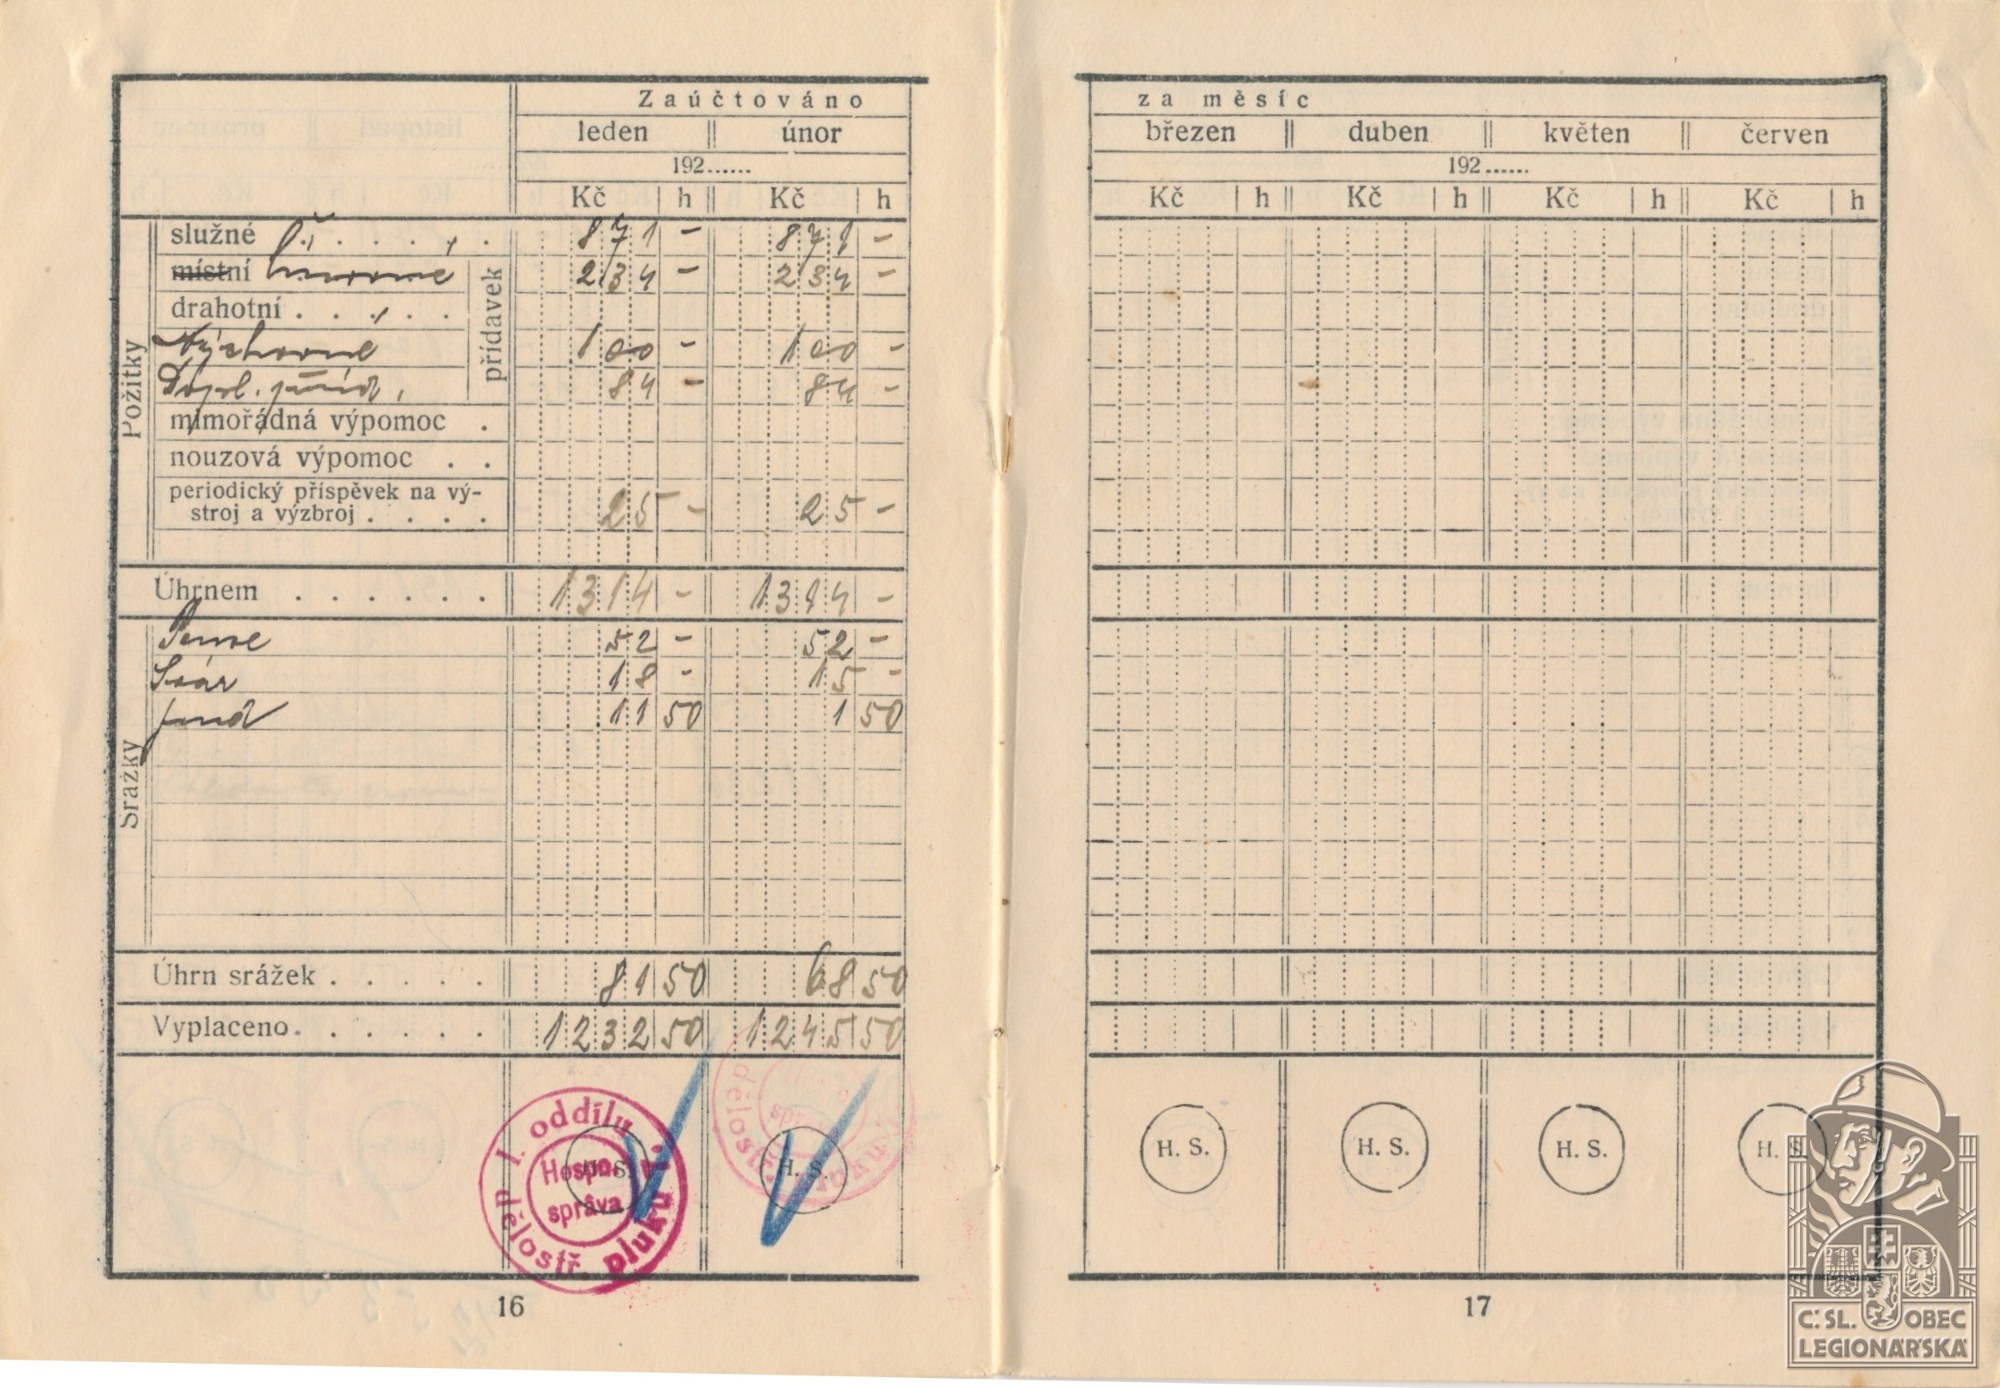 Zaúčtováno
leden únor
192......
Kč h Kč h
Požitky
služné . . . . . 871 - 871 -
místní 234 - 234 -
přídavek
drahotní . . . . .
Výchovné 100 - 100 -
Dopl. příd. 84 - 84 -
mimořádná výpomoc .
nouzová výpomoc . .
periodický příspěvek na vý-
stroj a výzbroj . . . . 25 - 25 -
Úhrnem . . . . . . 1314 - 1314 -
Srážky
Pense 52 - 52 -
18 - 15 -
fond 11 50 1 50
Úhrn srážek . . . . . 81 50 68 50
Vyplaceno. . . . . . 1232 50 1245 50
I. oddílu
dělostř. pluku
Hosp.
správa
H. S.
H. S.
16
za měsíc
březen duben květen červen
192......
Kč h Kč h Kč h Kč h
H. S. H. S. H. S. H. S.
17
Č. SL. OBEC
LEGIONÁŘSKÁ